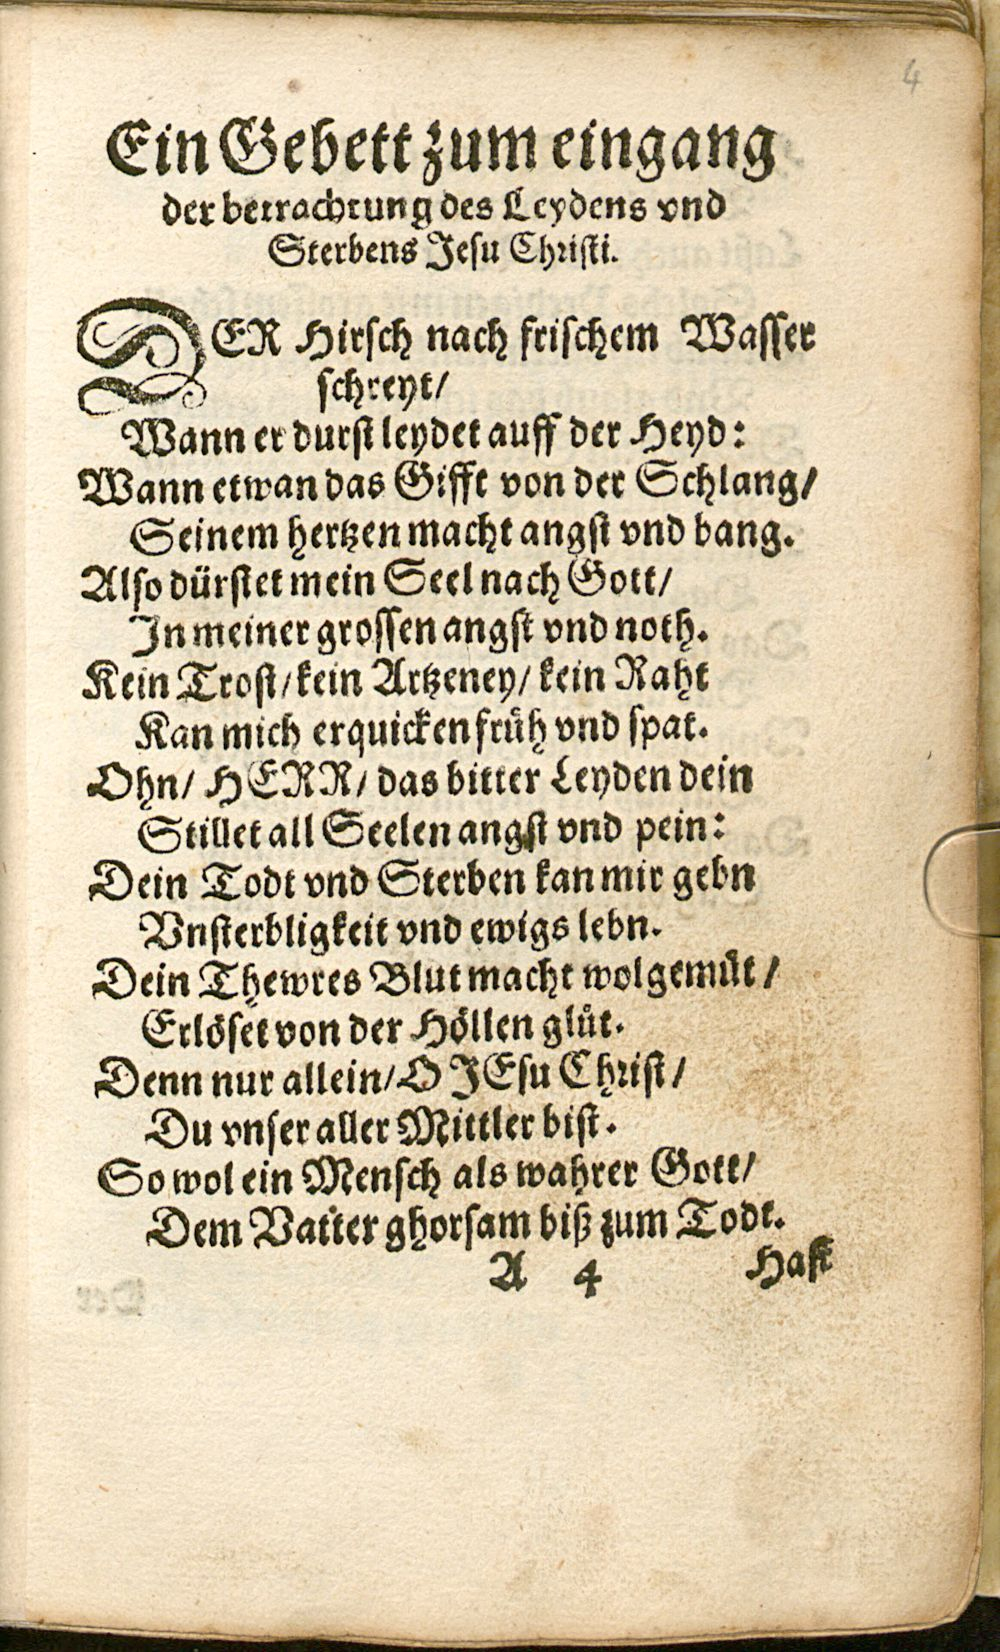 4
Ein Gebett zum eingang
der betrachtung des Leydens vnd
Sterbens Jesu Christi.
DER Hirsch nach frischem Wasser
schreyt/
Wann er durst leydet auff der Heyd:
Wann etwan das Gifft von der Schlang/
Seinem hertzen macht angst vnd bang.
Also dürstet mein Seel nach Gott/
In meiner grossen angst vnd noth.
Kein Trost/kein Artzeney/kein Raht
Kan mich erquicken früh vnd spat.
Ohn/ HERR/ das bitter Leyden dein
Stillet all Seelen angst vnd pein:
Dein Todt vnd Sterben kan mir gebn
Vnsterbligkeit vnd ewigs lebn.
Dein Thewres Blut macht wolgemüt/
Erlöset von der Höllen glüt.
Denn nur allein/O JEsu Christ/
Du vnser aller Mittler bist.
So wol ein Mensch als wahrer Gott/
Dem Vatter ghorsam biß zum Todt.
A 4 Hast